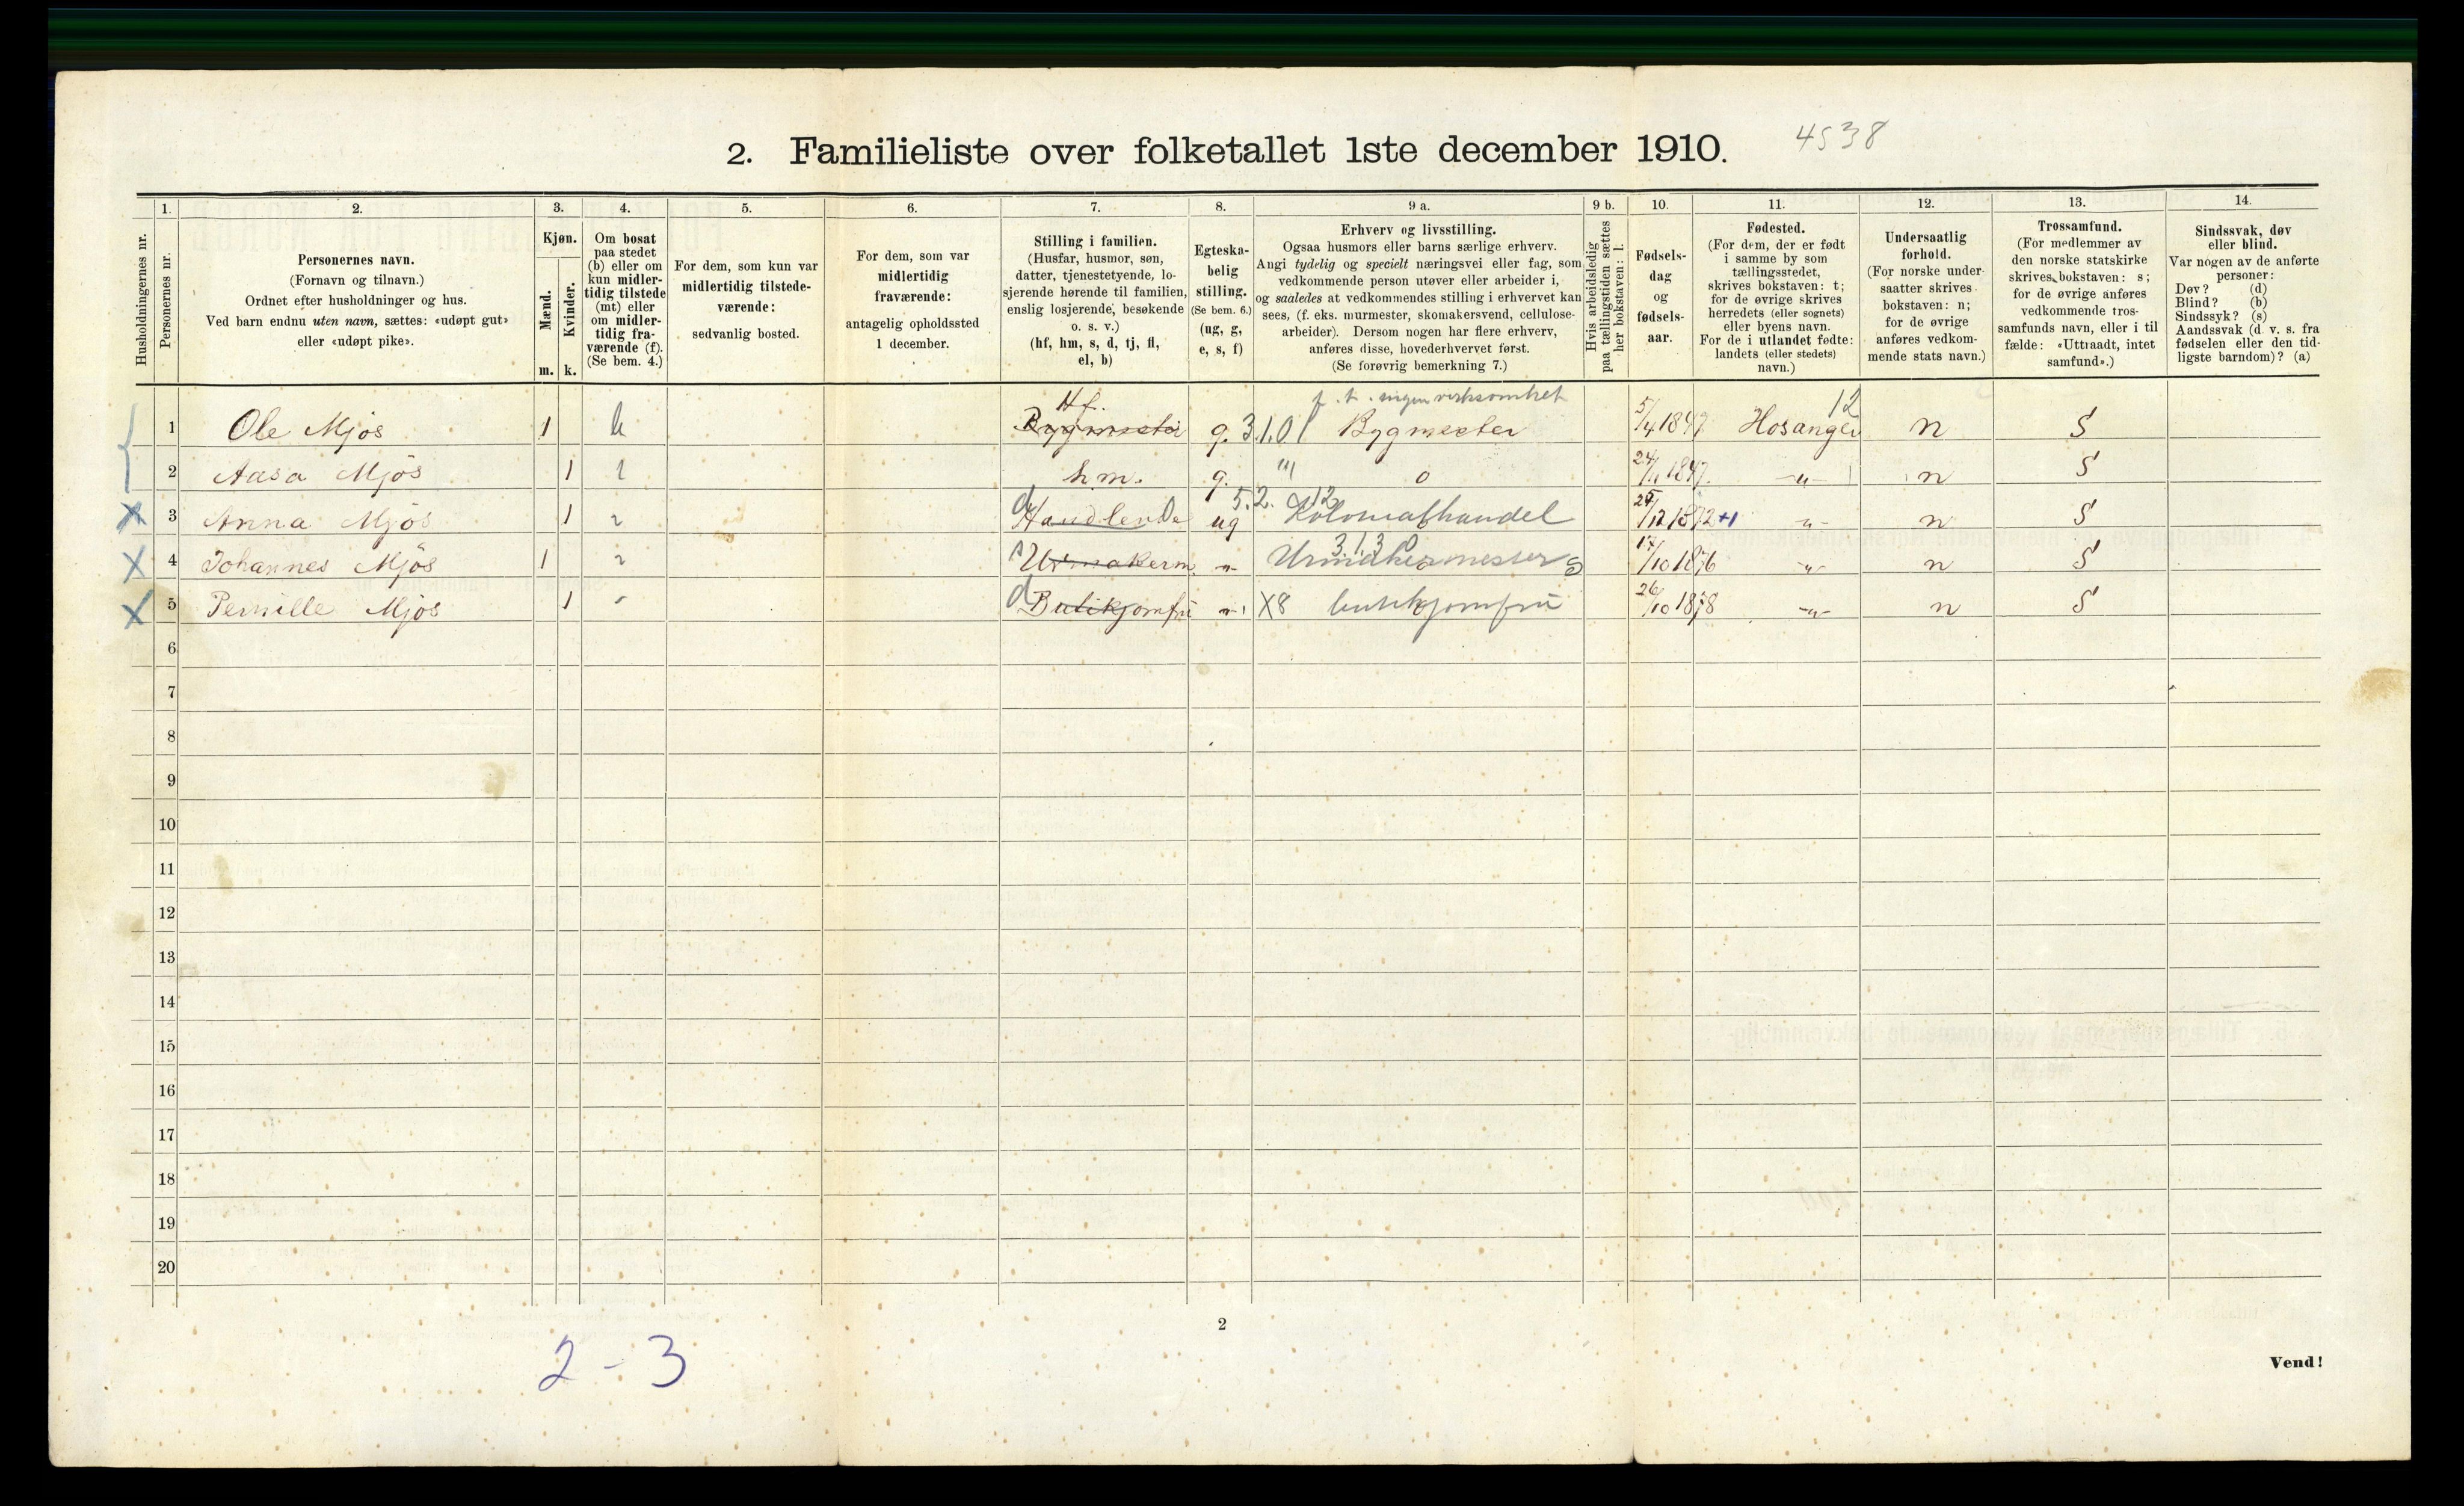 2. Familieliste over folketallet 1ste december 1910. 4538
Husholdningernes nr.
1.
Personernes nr.
2.
Personernes navn.
(Fornavn og tilnavn.)
Ordnet efter husholdninger og hus.
Ved barn endnu uten navn, sættes: «udøpt gut»
eller «udøpt pike».
3.
Kjøn.
Mænd.
Kvinder.
m. k.
4.
Om bosat
paa stedet
(b) eller om
kun midler-
tidig tilstede
(mt) eller
om midler-
tidig fra-
værende (f).
(Se bem. 4.)
5.
For dem, som kun var
midlertidig tilstede-
værende:
sedvanlig bosted.
6.
For dem, som var
midlertidig
fraværende:
antagelig opholdssted
1 december.
7.
Stilling i familien.
(Husfar, husmor, søn,
datter, tjenestetyende, lo-
sjerende hørende til familien,
enslig losjerende, besøkende
o. s. v.)
(hf, hm, s, d, tj, fl,
el, b)
8.
Egteska-
belig
stilling.
(Se bem. 6.)
(ug, g,
e, s, f)
9 a.
Erhverv og livsstilling.
Ogsaa husmors eller barns særlige erhverv.
Angi tydelig og specielt næringsvei eller fag, som
vedkommende person utøver eller arbeider i,
og saaledes at vedkommendes stilling i erhvervet kan
sees, (f. eks. murmester, skomakersvend, cellulose-
arbeider). Dersom nogen har flere erhverv,
anføres disse, hovederhvervet først.
(Se forøvrig bemerkning 7.)
9 b.
Hvis arbeidsledig
paa tællingstiden sættes
her bokstaven: l.
10.
Fødsels-
dag
og
fødsels-
aar.
11.
Fødested.
(For dem, der er født
i samme by som
tællingsstedet,
skrives bokstaven: t;
for de øvrige skrives
herredets (eller sognets)
eller byens navn.
For de i utlandet fødte:
landets (eller stedets)
navn.)
12.
Undersaatlig
forhold.
(For norske under-
saatter skrives
bokstaven: n;
for de øvrige
anføres vedkom-
mende stats navn.)
13.
Trossamfund.
(For medlemmer av
den norske statskirke
skrives bokstaven: s;
for de øvrige anføres
vedkommende tros-
samfunds navn, eller i til
fælde: «Uttraadt, intet
samfund».)
14.
Sindssvak, døv
eller blind.
Var nogen av de anførte
personer:
Døv? (d)
Blind? (b)
Sindssyk? (s)
Aandssvak (d. v. s. fra
fødselen eller den tid-
ligste barndom)? (a)
Hf. p. t. ingen virksomhet 12
1 Ole Mjøs 1 b Bygmester g. 3.1.01 Bygmester 5/4 1847 Hosanger n S
2 Aasa Mjös 1 hm. g. "" o 24/11 1847. -"- n S
5.2. 12
3 Anna Mjös 1 d Handlende ug Kolonialhandel 25/12 1872 +1 -"- n S
3.1.3
4 Johannes Mjös 1 s Urmakerm. -"- Urmakermester S 17/10 1876 -"- n S
5 Pernille Mjös 1 d Butikjomfru -"- X8 butikjomfru 26/10 1878 -"- n S
6
7
8
9
10
11
12
13
14
15
16
17
18
19
20
2
2 - 3
Vend!